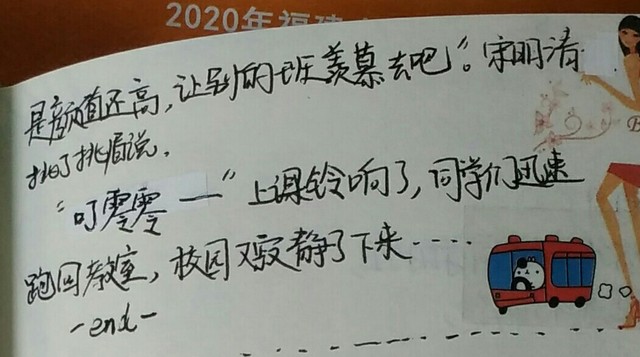 2020年福建
是颜值还高，让别的班羡慕去吧”。宋明清
挑了挑眉说.
“叮零零一”上课铃响了，同学们迅速
跑回教室，校园又寂静了下来····
-end-
B